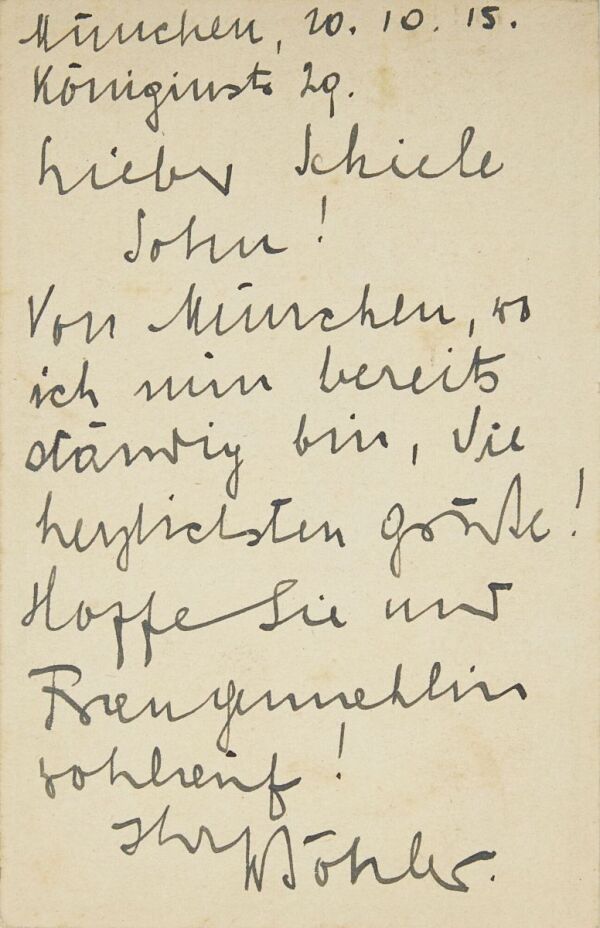 München, 20. 10. 15.
Königinstr 29.
Lieber Schiele
Sohn!
Von München, wo
ich nun bereits
ständig bin, die
herzlichsten Grüße!
Hoffe Sie und
Frau Gemahlin
wohlauf!
Ihr Böhler.